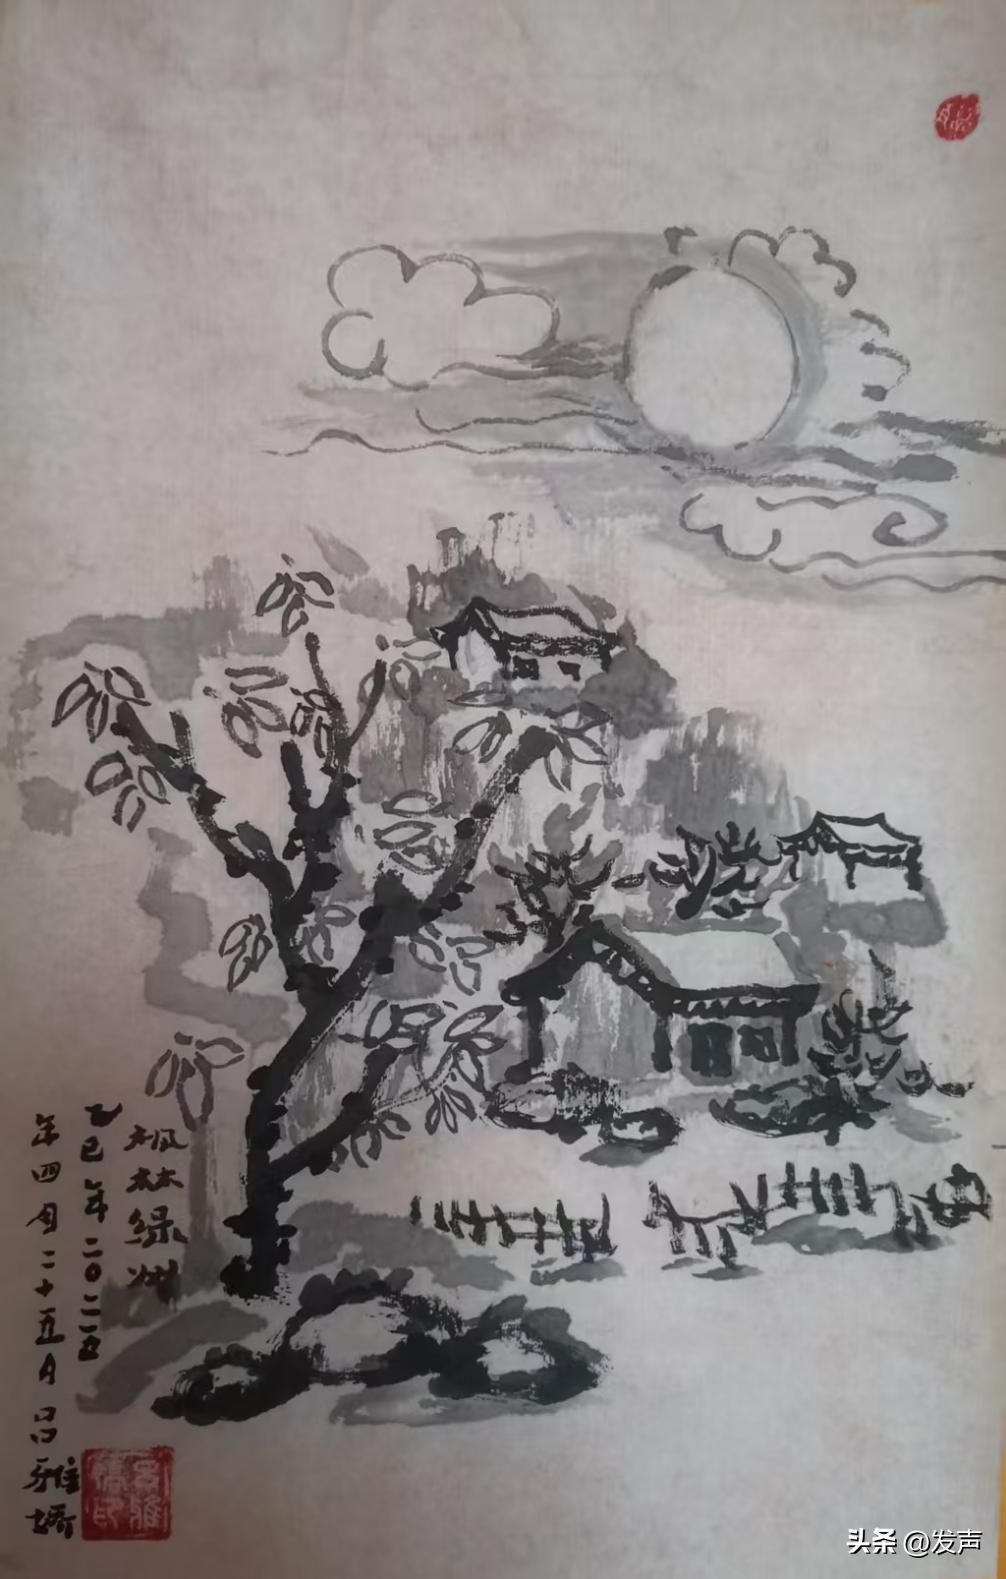 枫林绿州
乙巳年二〇二五
年四月二十五日吕雅
头条 @发声